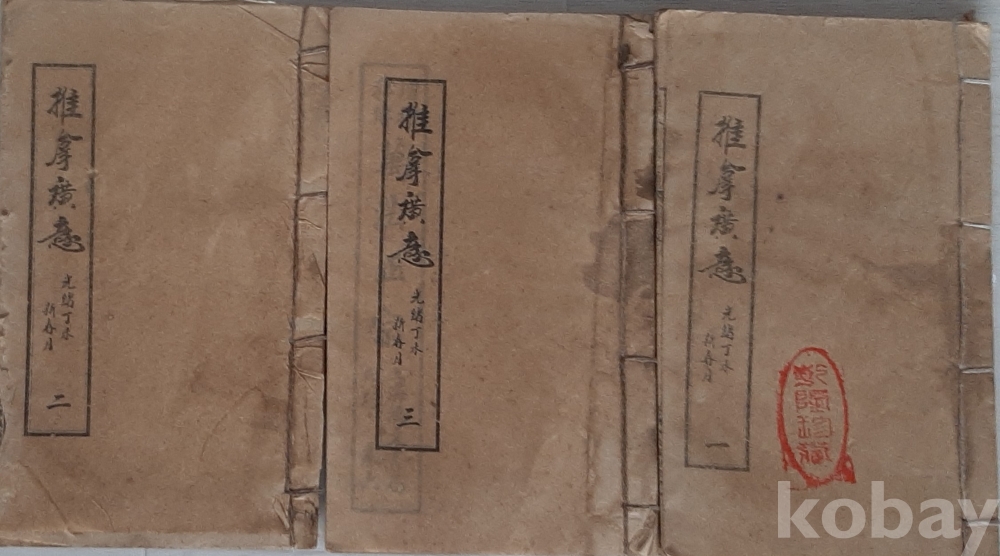 推拿廣意
光緒丁未
新春月
二
推拿廣意
光緒丁未
新春月
三
推拿廣意
光緒丁未
新春月
一
kobay